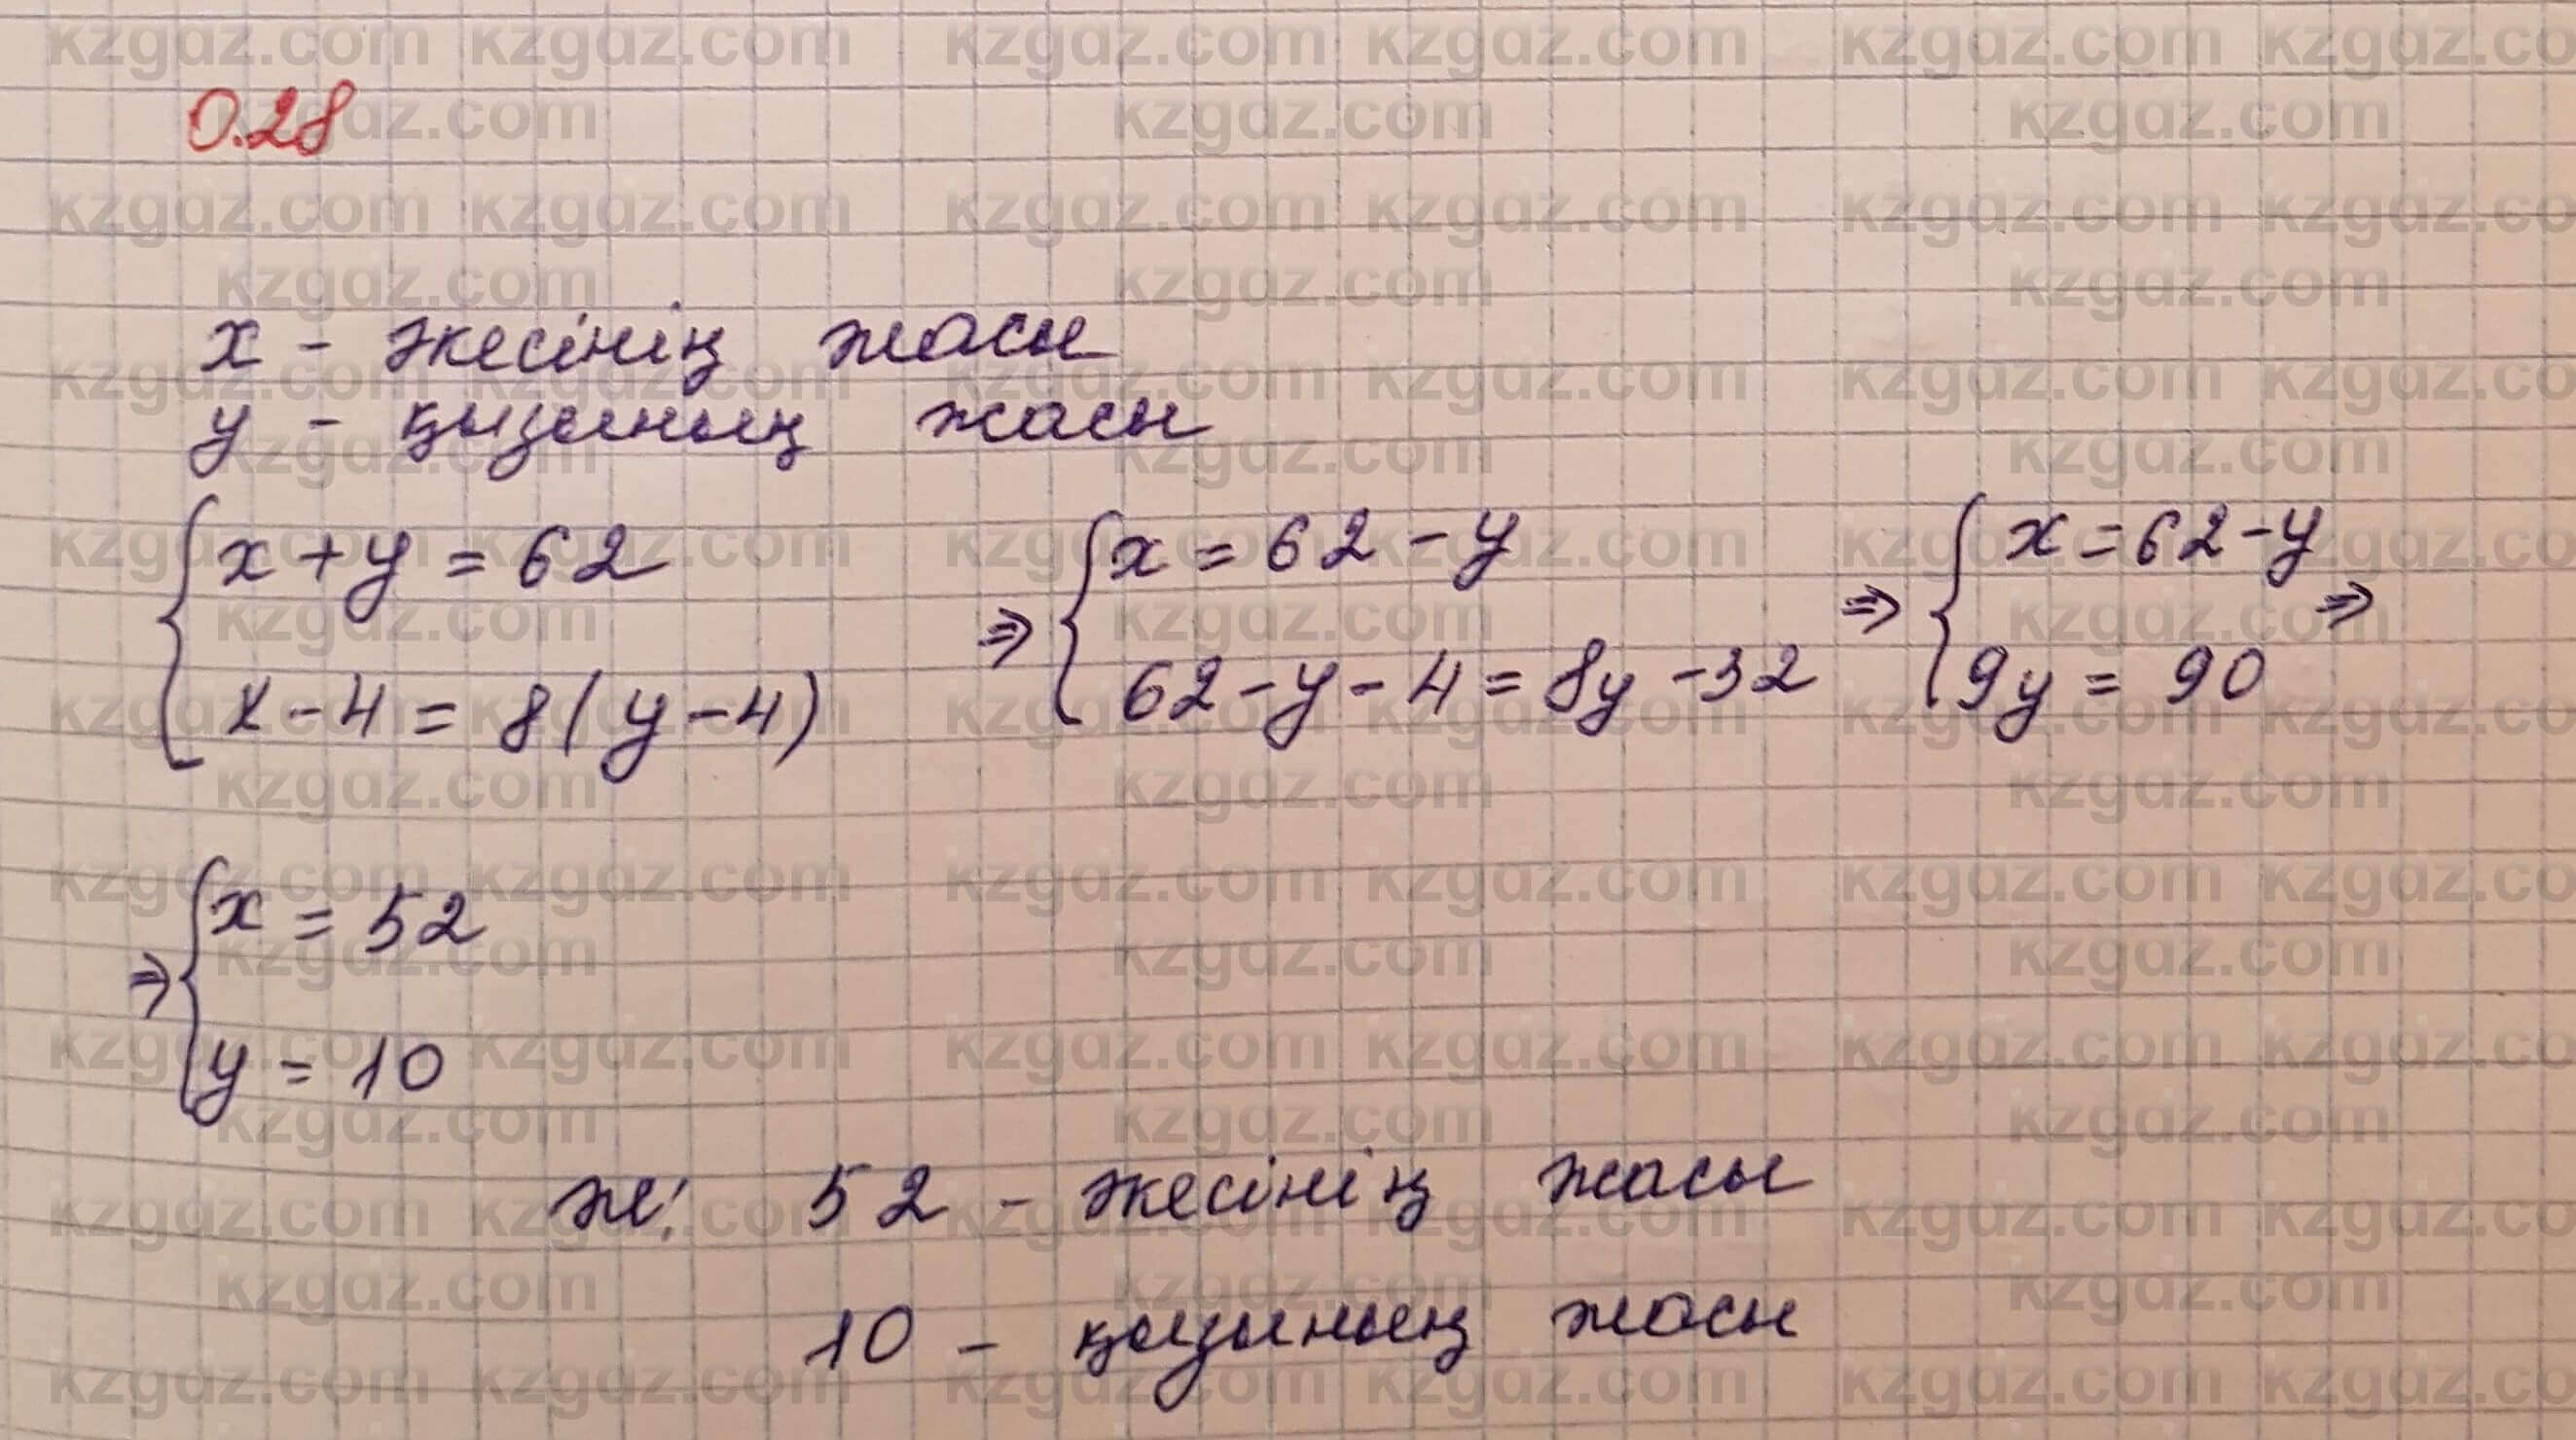 0.28
x - әкесінің жасы
y - қызының жасы
{ x + y = 62 ⇒ { x = 62 - y ⇒ { x = 62 - y ⇒
x - 4 = 8(y - 4) 62 - y - 4 = 8y - 32 9y = 90
⇒ { x = 52
y = 10
ж: 52 - әкесінің жасы
10 - қызының жасы
kzgdz.com